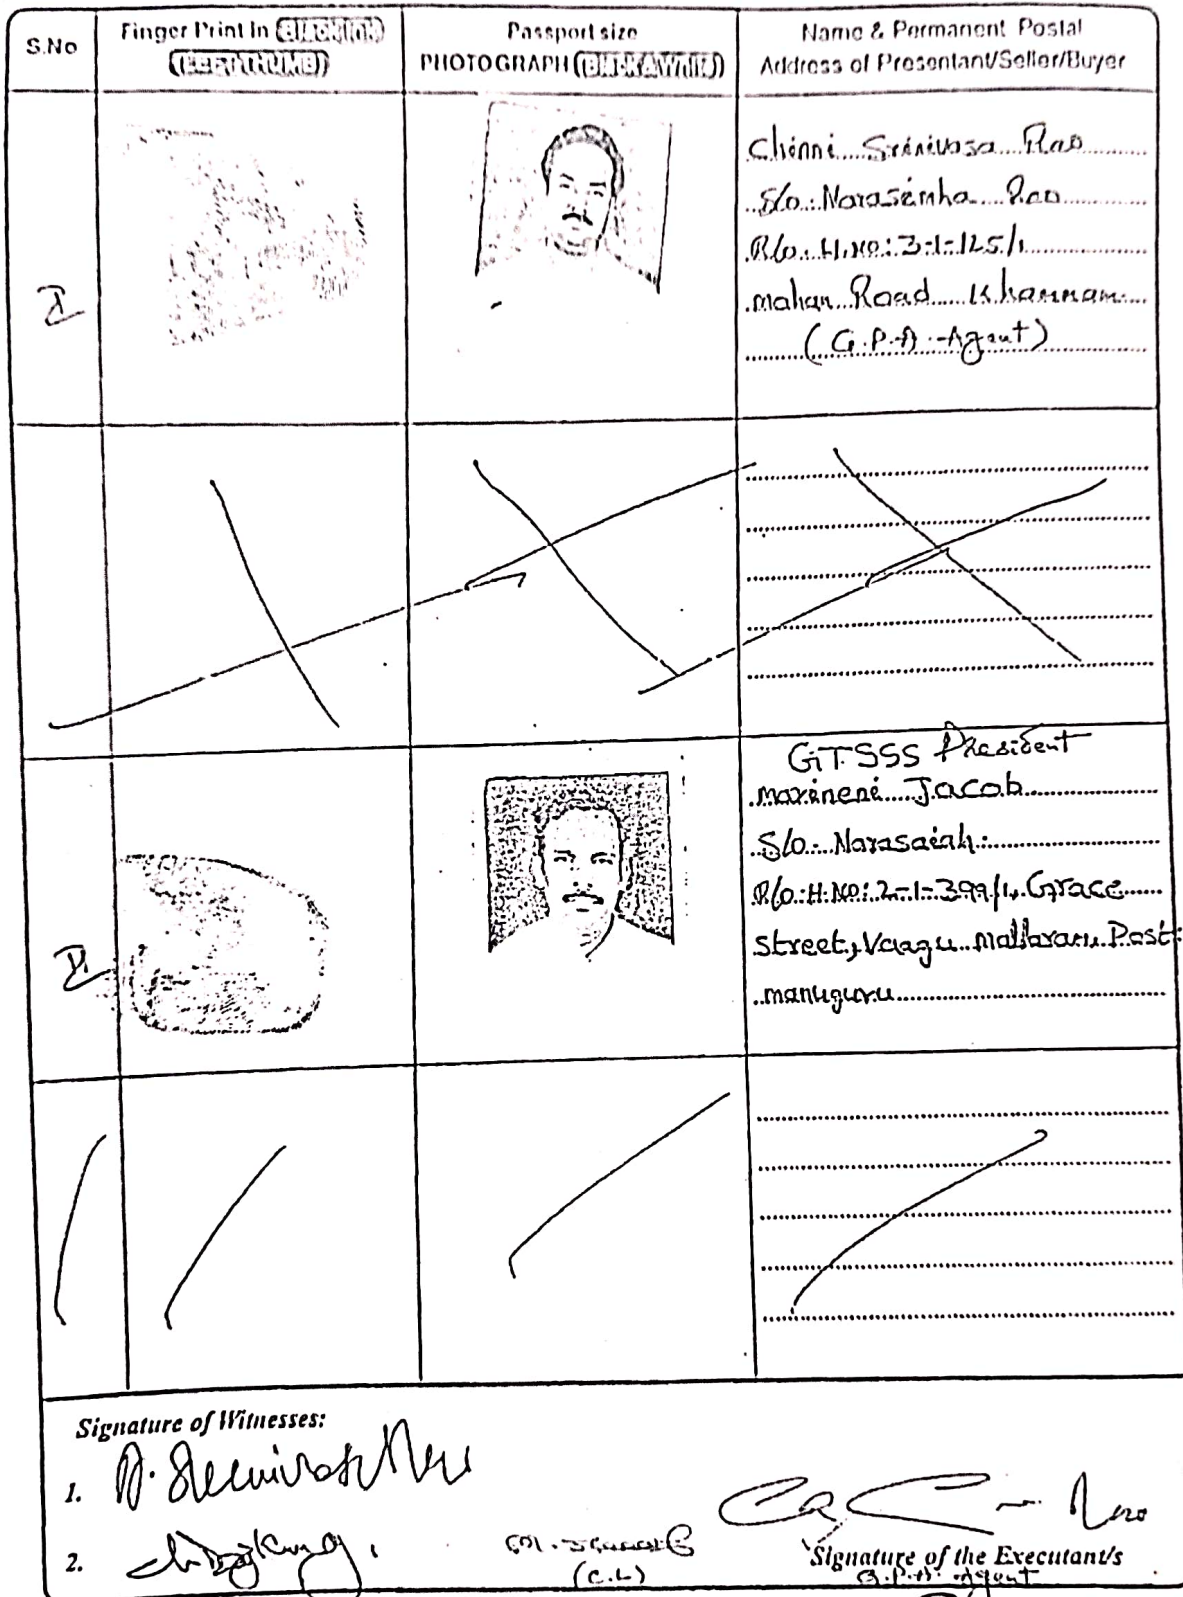 S.No
Finger Print In BLACK INK
(LEFT THUMB)
Passport size
PHOTOGRAPH (BLACK & WHITE)
Name & Permanent Postal
Address of Presentant/Seller/Buyer
I
Chinni Srinivasa Rao
S/o. Narasimha Rao
R/o. H.No: 3-1-125/1
Road Khammam
(G.P.A. Agent)
II
GTSSS President
marineni Jacob
S/o. Narasaiah
R/o. H.No: 2-1-399/1, Grace
street, Vaagu mallaram Post:
manuguru
Signature of Witnesses:
1.
2.
(C.L)
Rao
Signature of the Executant/s
G.P.A. Agent